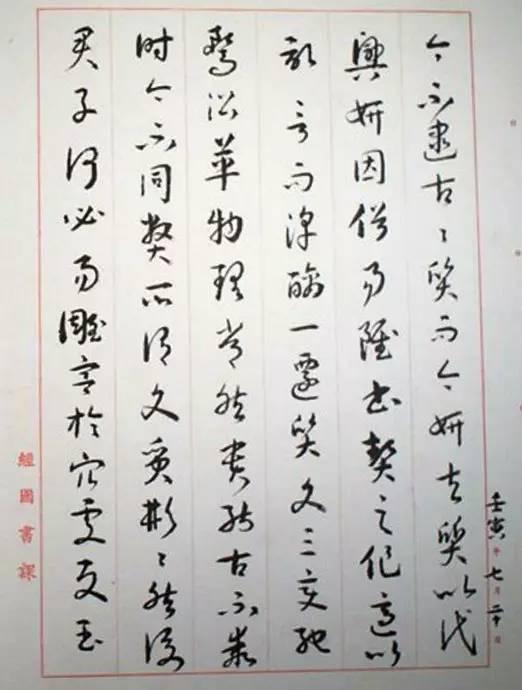 今不逮古〻質而今妍夫質以代
興妍因俗易雖書契之作適以
記言而淳醨一遷質文三變馳
鶩沿革物理常然貴能古不乖
時今不同弊所謂文質彬〻然後
君子何必易雕宮於穴處反玉
壬寅年七月二十日
經國書課